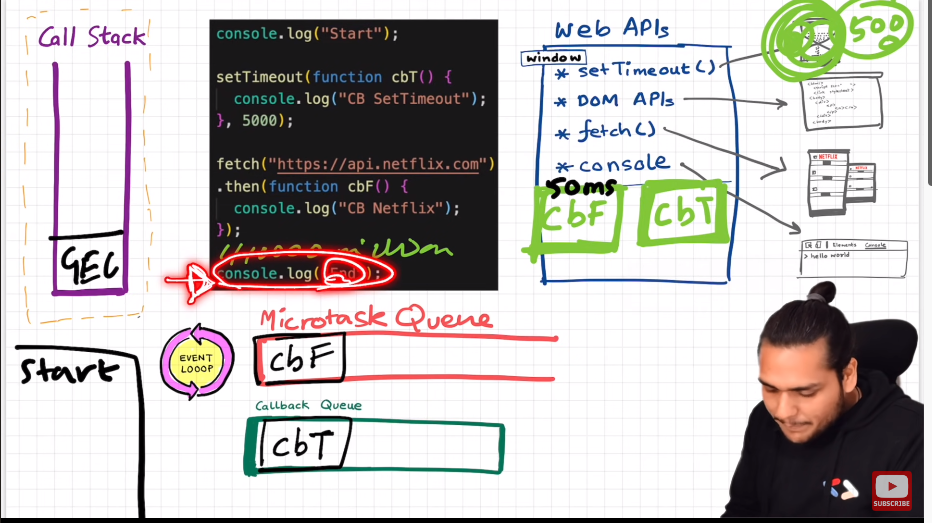 Call Stack
GEC
console.log("Start");
setTimeout(function cbT() {
console.log("CB SetTimeout");
}, 5000);
fetch("https://api.netflix.com")
.then(function cbF() {
console.log("CB Netflix");
});
console.log("End");
Web APIs
window
* setTimeout()
* DOM APIs
* fetch()
* console
50ms
cbF
cbT
500
NETFLIX
Elements Console
> hello world
Start
EVENT
LOOOP
Microtask Queue
cbF
Callback Queue
cbT
SUBSCRIBE